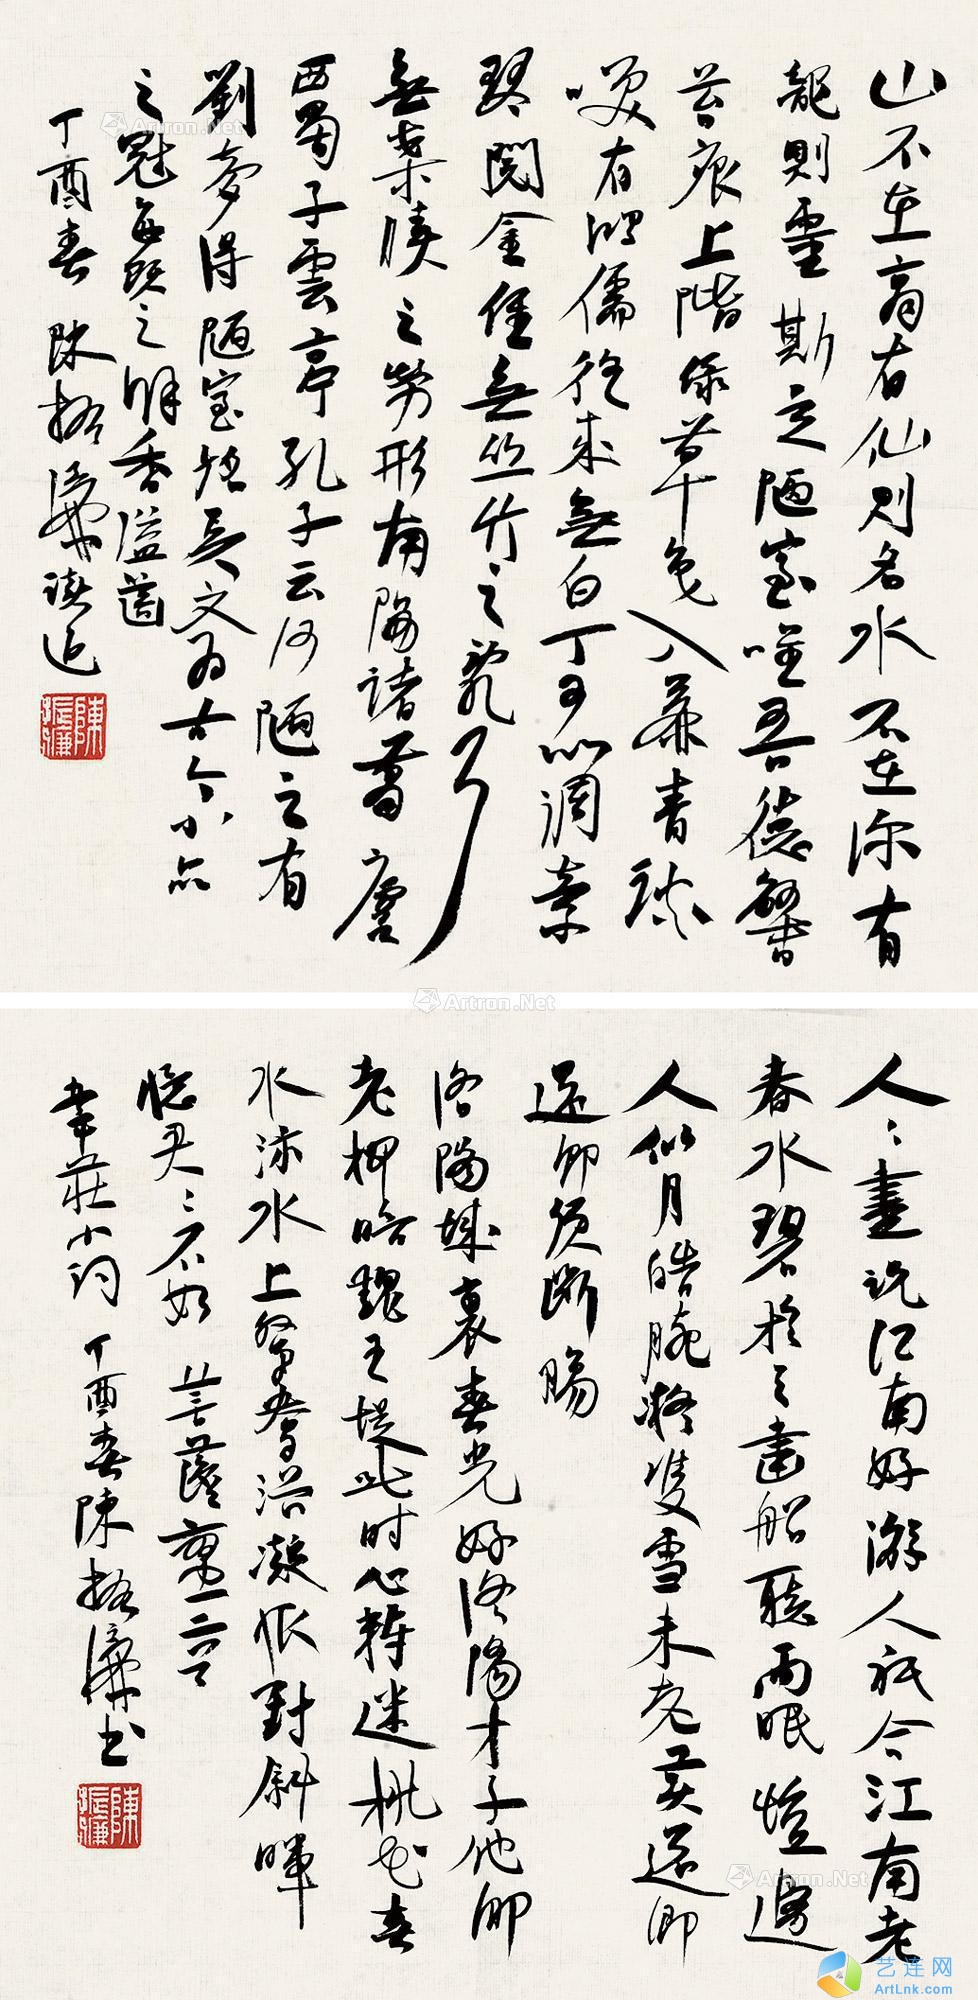 山不在高有仙則名水不在深有
龍則靈斯是陋室唯吾德馨
苔痕上階綠草色入簾青談
笑有鴻儒往來無白丁可以調素
琴閱金經無絲竹之亂耳
無案牘之勞形南陽諸葛廬
西蜀子雲亭孔子云何陋之有
劉夢得陋室銘美文為古今小品
之冠每讀之餘香溢齒
丁酉春 陳振濂讀迄
陳振濂
人〻盡說江南好游人祇合江南老
春水碧於天畫船聽雨眠壚邊
人似月皓腕凝雙雪未老莫還鄉
還鄉須斷腸
洛陽城裏春光好洛陽才子他鄉
老柳暗魏王堤此時心轉迷桃花春
水淥水上鴛鴦浴凝恨對斜暉
憶君〻不知 菩薩蠻二首
韋莊小詞 丁酉春陳振濂書
陳振濂
Artron.Net
Artron.Net
Artron.Net
艺连网
ArtLnk.com